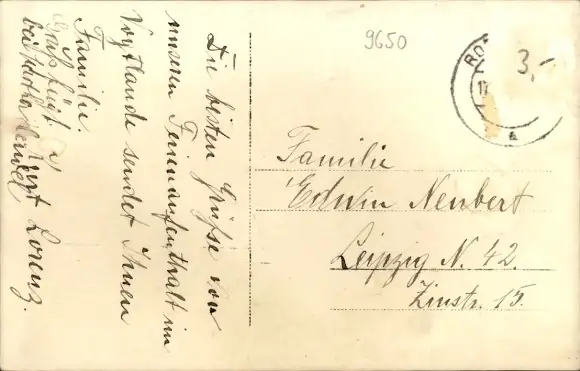 Die besten Grüße von
unserem Ferienaufenthalt im
Vogtlande sendet Ihnen
Familie
Lorenz.
9650
3,-
RO
Familie
Edwin Neubert
Leipzig N. 42.
Zinstr. 15.